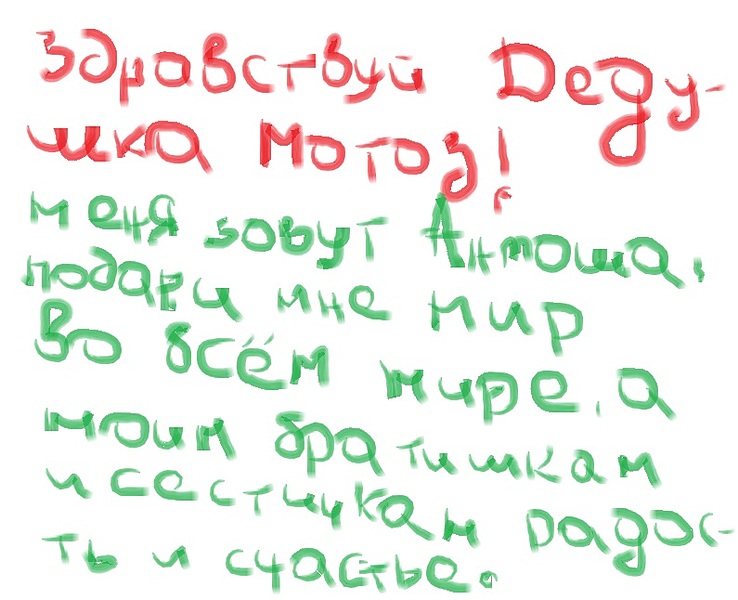 Здравствуй Деду-
шка Мотоз!
меня зовут Антоша,
подари мне мир
Во всём мире, а
моим братишкам
и сестичкам радос-
ть и счастье.